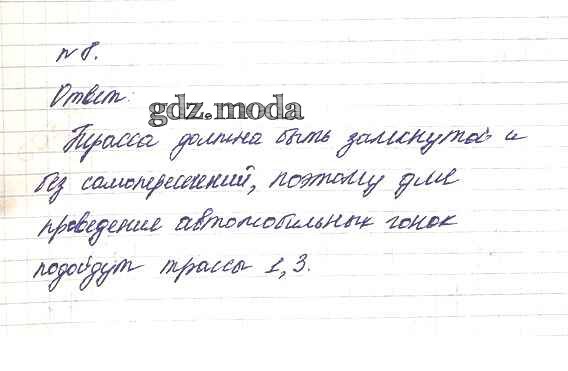 № 8.
Ответ:
gdz.moda
Трасса должна быть замкнутой и
без самопересечений, поэтому для
проведение автомобильных гонок
подойдут трассы 1, 3.